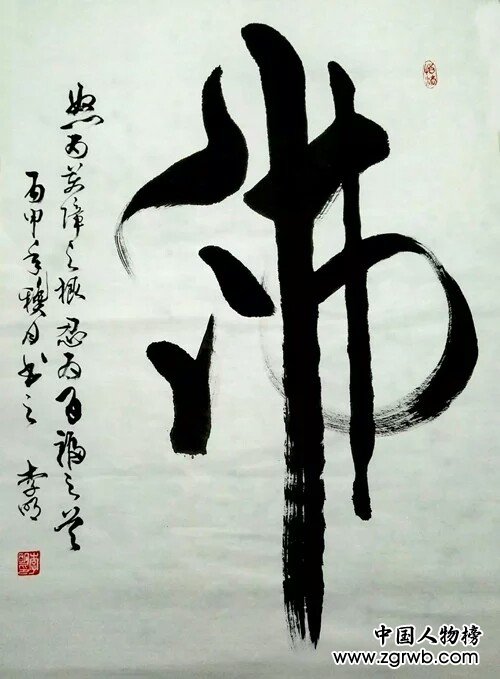 佛
怒为萬障之根忍为百福之首
丙申年臘月书之
李明
中国人物榜
www.zgrwb.com